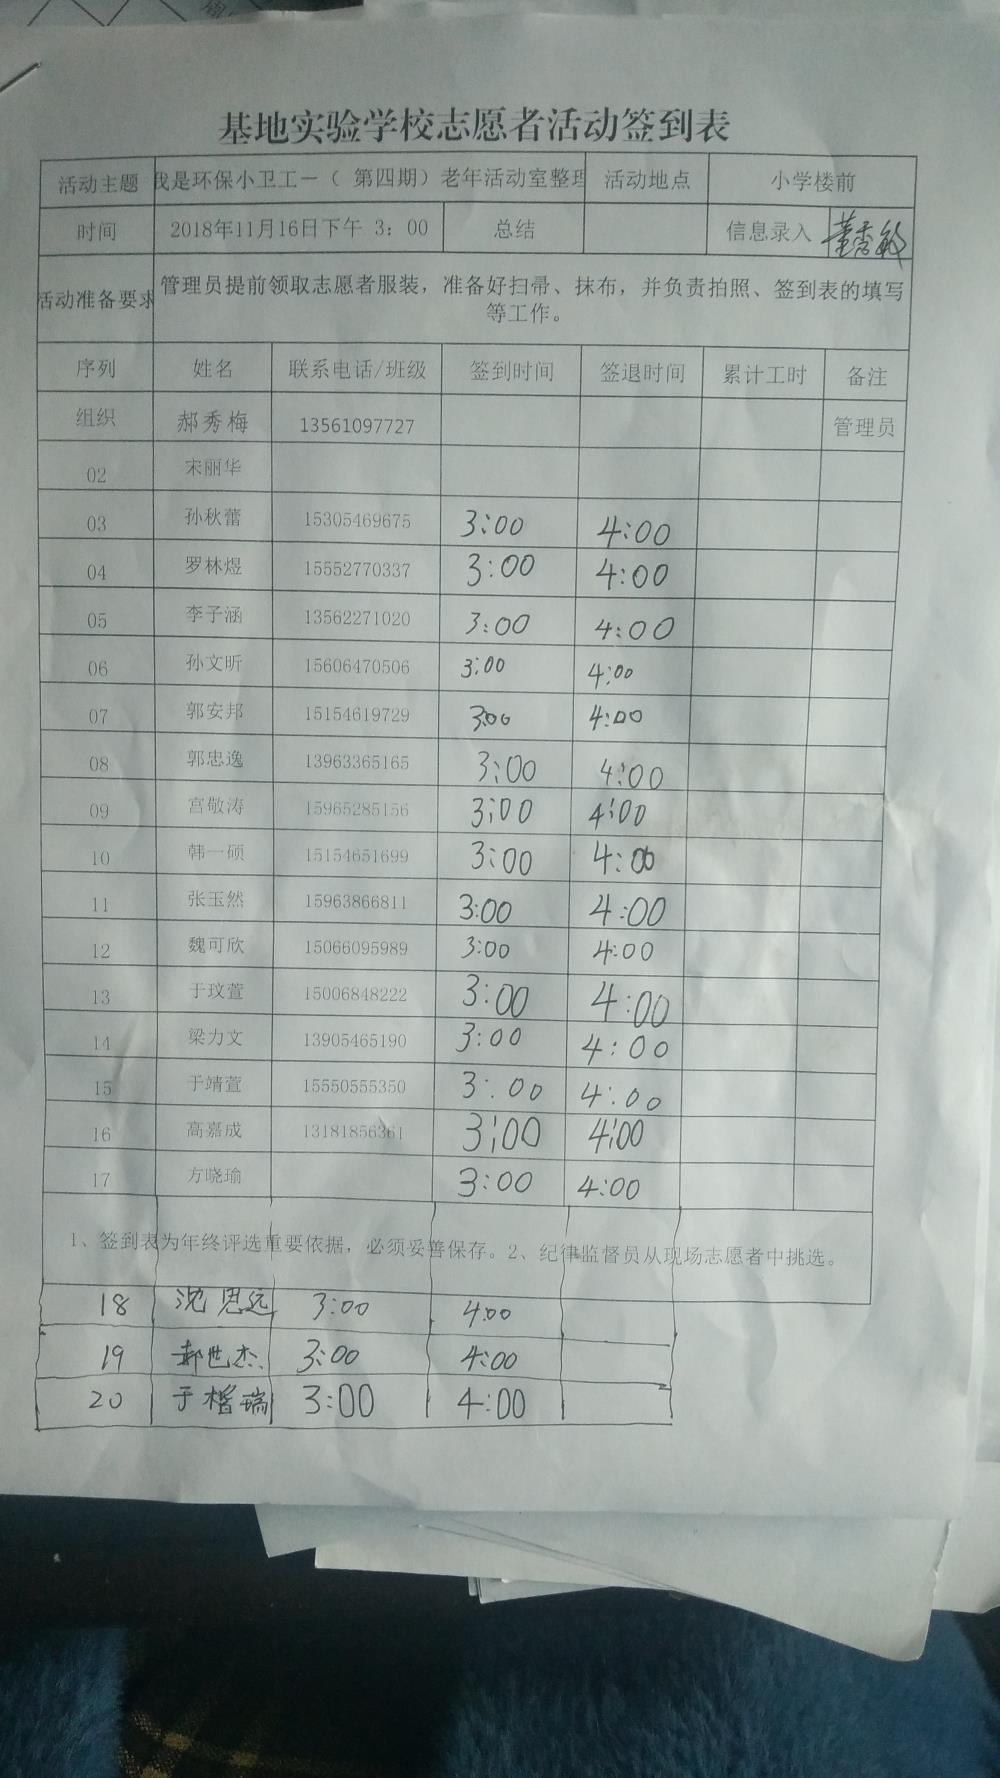 基地实验学校志愿者活动签到表
活动主题 我是环保小卫工一（ 第四期）老年活动室整理 活动地点 小学楼前
时间 2018年11月16日下午 3：00 总结 信息录入 董秀敏
活动准备要求 管理员提前领取志愿者服装，准备好扫帚、抹布，并负责拍照、签到表的填写
等工作。
序列 姓名 联系电话/班级 签到时间 签退时间 累计工时 备注
组织 郝秀梅 13561097727 管理员
02 宋丽华
03 孙秋蕾 15305469675 3:00 4:00
04 罗林煜 15552770337 3:00 4:00
05 李子涵 13562271020 3:00 4:00
06 孙文昕 15606470506 3:00 4:00
07 郭安邦 15154619729 3:00 4:00
08 郭忠逸 13963365165 3:00 4:00
09 宫敬涛 15965285156 3:00 4:00
10 韩一硕 15154651699 3:00 4:00
11 张玉然 15963866811 3:00 4:00
12 魏可欣 15066095989 3:00 4:00
13 于玟萱 15006848222 3:00 4:00
14 梁力文 13905465190 3:00 4:00
15 于靖萱 15550555350 3:00 4:00
16 高嘉成 13181856361 3:00 4:00
17 方晓瑜 3:00 4:00
1、签到表为年终评选重要依据，必须妥善保存。2、纪律监督员从现场志愿者中挑选。
18 沈思远 3:00 4:00
19 郝世杰 3:00 4:00
20 于 瑞 3:00 4:00